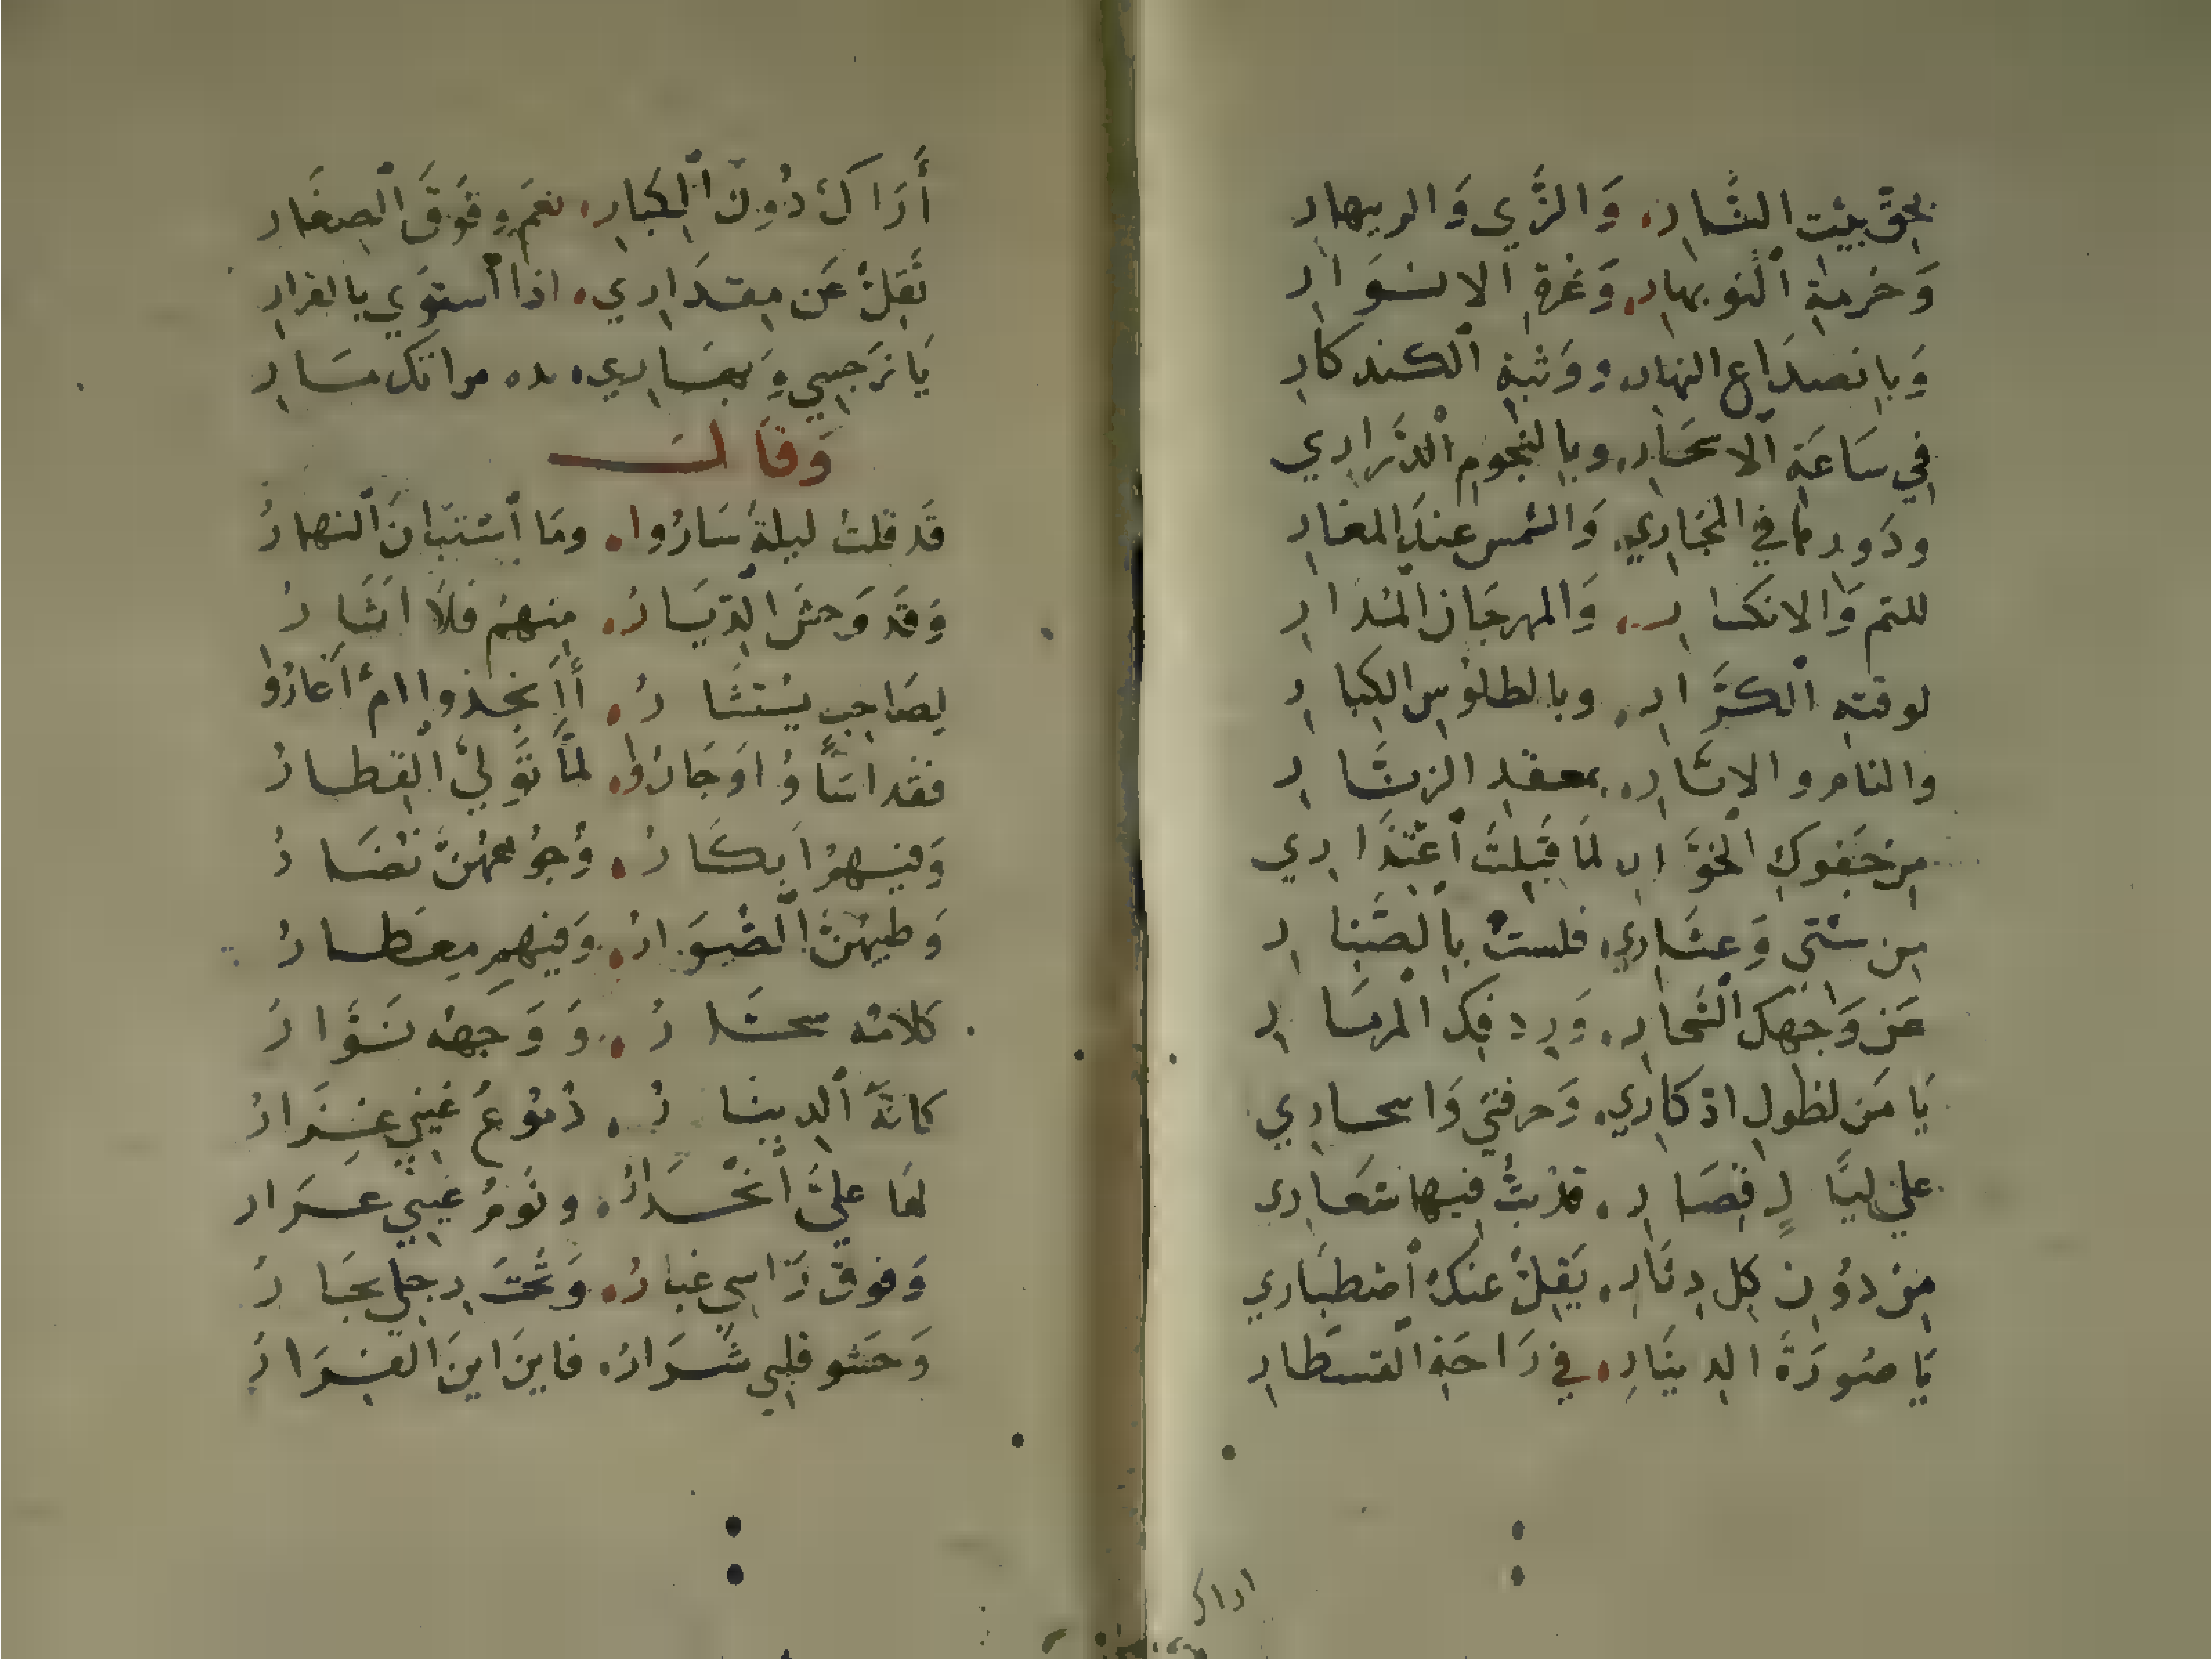 بحق بيت النار، والزي والربيهار
وحرمة النوبهار، وغرة الانوار
وبانصداع النهار، ووثبة الكندكار
في ساعة الاسحار، وبالنجوم الدراري
ودور ما في المجاري، والشمس عند المغار
للتم والانكار، والمهرجان المدار
لوقته الكرار، وبالطلوس الكبار
والنامر و الابار، بمعقد الزنار
من حقوك الخوار، لما قبلت اعتذاري
من سبتي وعثاري، فلست بالصبار
عن وجهك النحار، وردفك المرمار
يا من لطول اذكاري، وحرقتي واسحاري
علي ليال قصار، قد بت فيها شعاري
من دون كل دثار، يقل عنك اصطباري
يا صورة الدينار، في راحة القسطار
اراك
أراك دون الكبار، نعم وفوق الصغار
تقل عن مقداري، اذا استوي بالقرار
يا نرجسي وبهاري، بده مراتك سار
وقال
قد قلت ليلة ساروا، وما استبان النهار
وقد وحش الديار، منهم فلا اثار
لصاحب يستشار، أأنجدوا ام أغاروا
فقد اساؤا وجاروا، لما تولي القطار
وفيهم ابكار، وجوههن نضار
وطيبهن الصوار، وفيهم معطار
كلامه سحار، ووجهه نوار
كانه الدينار، دموع عيني غزار
لها علي انحدار، ونوم عيني غرار
وفوق راسي غبار، وتحت رجلي بحار
وحشو قلبي شرار، فاين اين الفرار